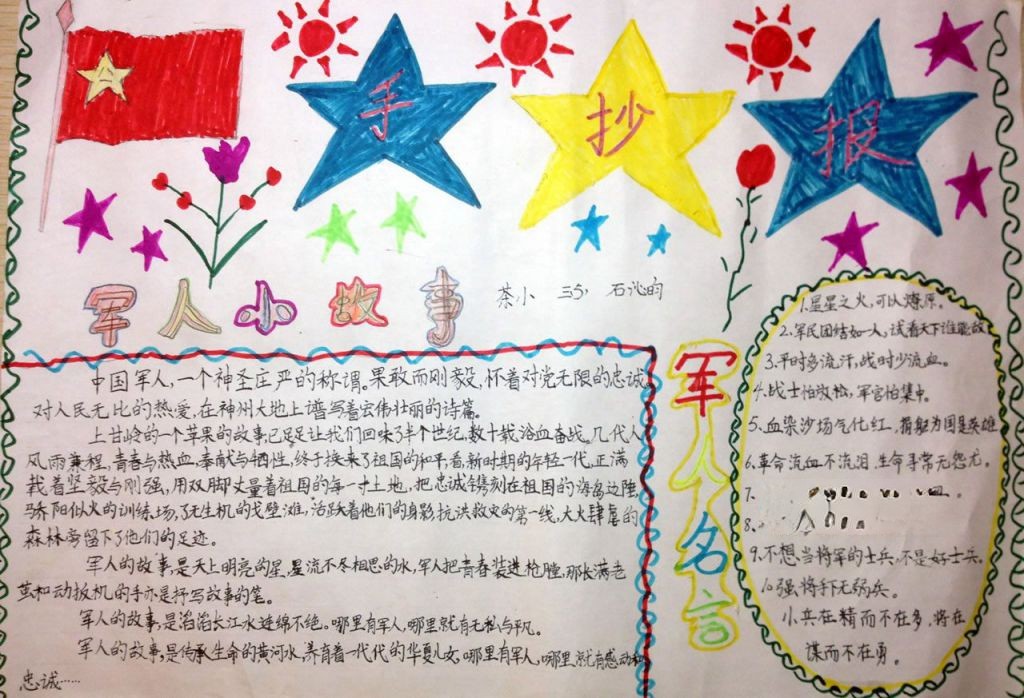 手抄报
军人小故事
茶小 三
军人名言
中国军人,一个神圣庄严的称谓。果敢而刚毅,怀着对党无限的忠诚。
对人民无比的热爱,在神州大地上谱写着宏伟壮丽的诗篇。
上甘岭的一个苹果的故事,已足足让我们回味了半个世纪,数十载浴血奋战,几代人
风雨兼程,青春与热血,奉献与牺牲,终于换来了祖国的和平,看,新时期的年轻一代,正满
载着坚毅与刚强,用双脚丈量着祖国的每一寸土地,把忠诚镌刻在祖国的海岛边陲
骄阳似火的训练场,了无生机的戈壁滩,活跃着他们的身影,抗洪救灾的第一线,大火肆虐的
森林旁留下了他们的足迹。
军人的故事,是天上明亮的星,星流不尽相思的水,军人把青春装进枪膛,那长满老
茧和动扳机的手亦是抒写故事的笔。
军人的故事,是滔滔长江水连绵不绝。哪里有军人,哪里就有无私与平凡。
军人的故事,是传承生命的黄河水,养育着一代代的华夏儿女,哪里有军人,哪里就有感动和
忠诚……
1.星星之火,可以燎原。
2.军民团结如一人,试看天下谁能敌
3.平时多流汗,战时少流血。
4.战士怕放松,军官怕集中。
5.血染沙场气化虹,捐躯为国是英雄
6.革命流血不流泪,生命寻常无怨尤。
7.
8.
9.不想当将军的士兵,不是好士兵。
10强将手下无弱兵。
小兵在精而不在多,将在
谋而不在勇。